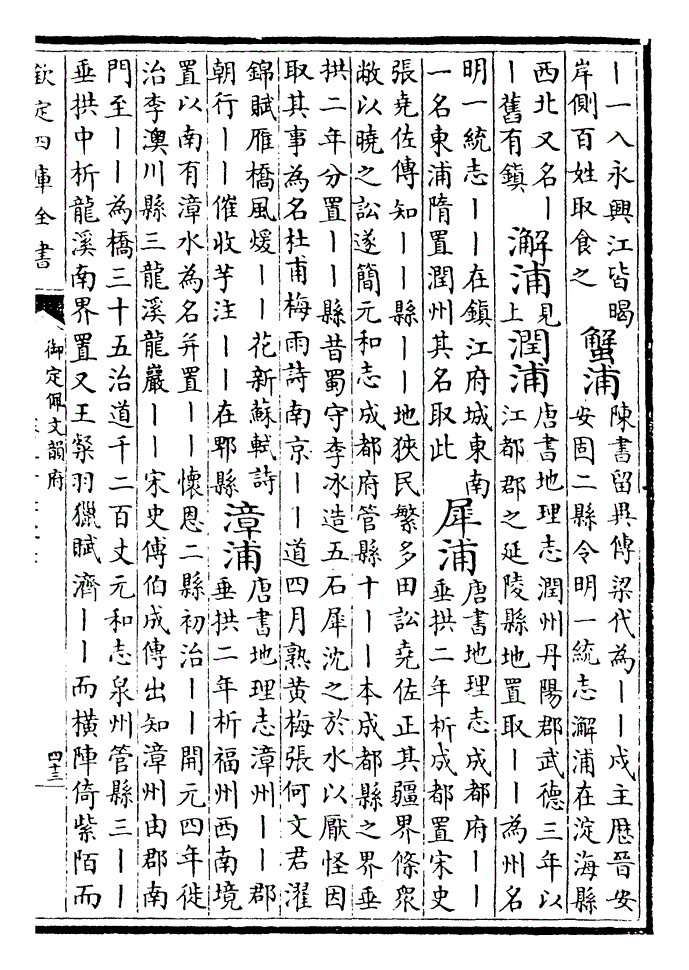 丨一入永興江皆暍
岸側百姓取食之
蟹浦
陳書留異傳梁代為丨丨戍主歷晉安
安固二縣令明一統志澥浦在淀海縣
西北又名丨
丨舊有鎮
澥浦
見
上
潤浦
唐書地理志潤州丹陽郡武德三年以
江都郡之延陵縣地置取丨丨為州名
明一統志丨丨在鎮江府城東南
一名東浦隋置潤州其名取此
犀浦
唐書地理志成都府丨丨
垂拱二年析成都置宋史
張堯佐傳知丨丨縣丨丨地狹民繁多田訟堯佐正其疆界條衆
敝以曉之訟遂簡元和志成都府管縣十丨丨本成都縣之界垂
拱二年分置丨丨縣昔蜀守李冰造五石犀沈之於水以厭怪因
取其事為名杜甫梅雨詩南京丨丨道四月熟黃梅張何文君濯
錦賦雁橋風煖丨丨花新蘇軾詩
朝行丨丨催收芋注丨丨在郫縣
漳浦
唐書地理志漳州丨丨郡
垂拱二年析福州西南境
置以南有漳水為名并置丨丨懷恩二縣初治丨丨開元四年徙
治李澳川縣三龍溪龍巖丨丨宋史傅伯成傳出知漳州由郡南
門至丨丨為橋三十五治道千二百丈元和志泉州管縣三丨丨
垂拱中析龍溪南界置又王粲羽獵賦濟丨丨而橫陣倚紫陌而
欽定四庫全書
御定佩文韻府
四十三